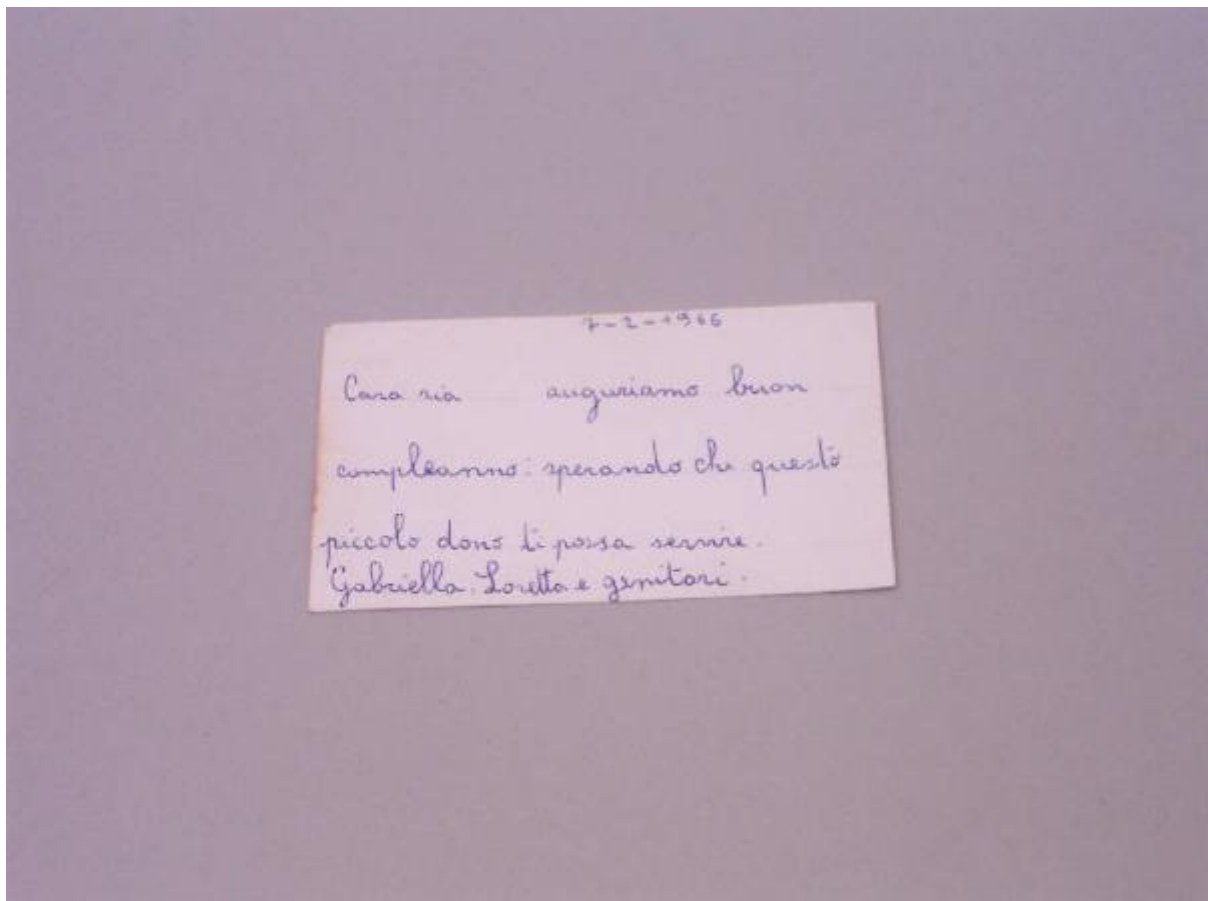 7-2-1966
Cara zia auguriamo buon
compleanno: sperando che questo
piccolo dono ti possa servire.
Gabriella, Loretta e genitori.